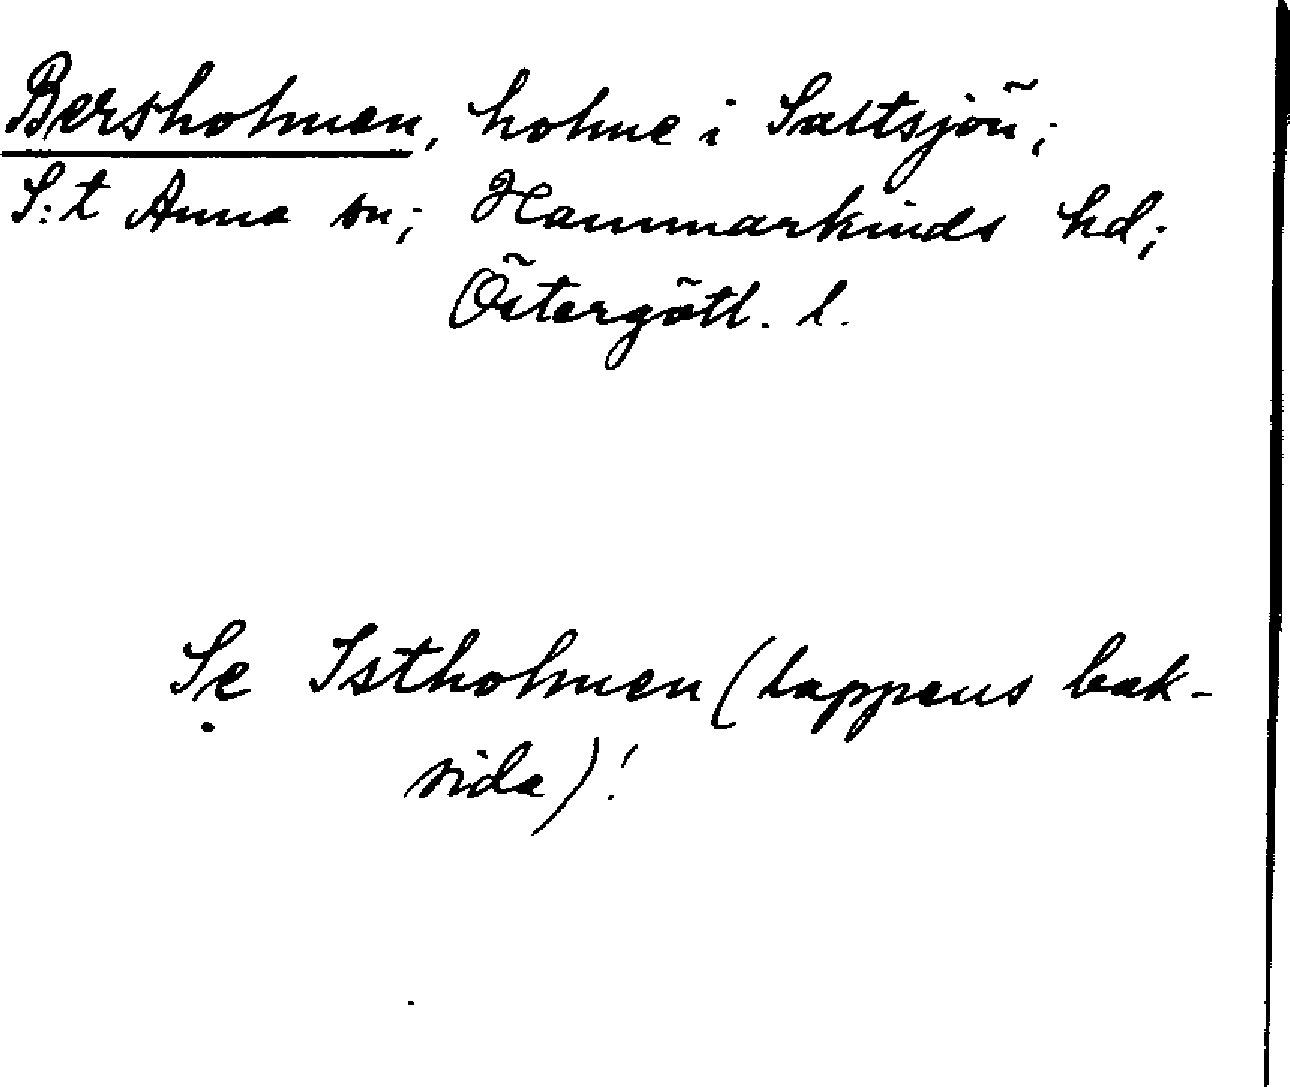 Bersholmen, holme i Saltsjön;
S:t Anna sn; Hammarkinds hd;
Östergötl. l.
Se Istholmen (lappens bak-
sida)!